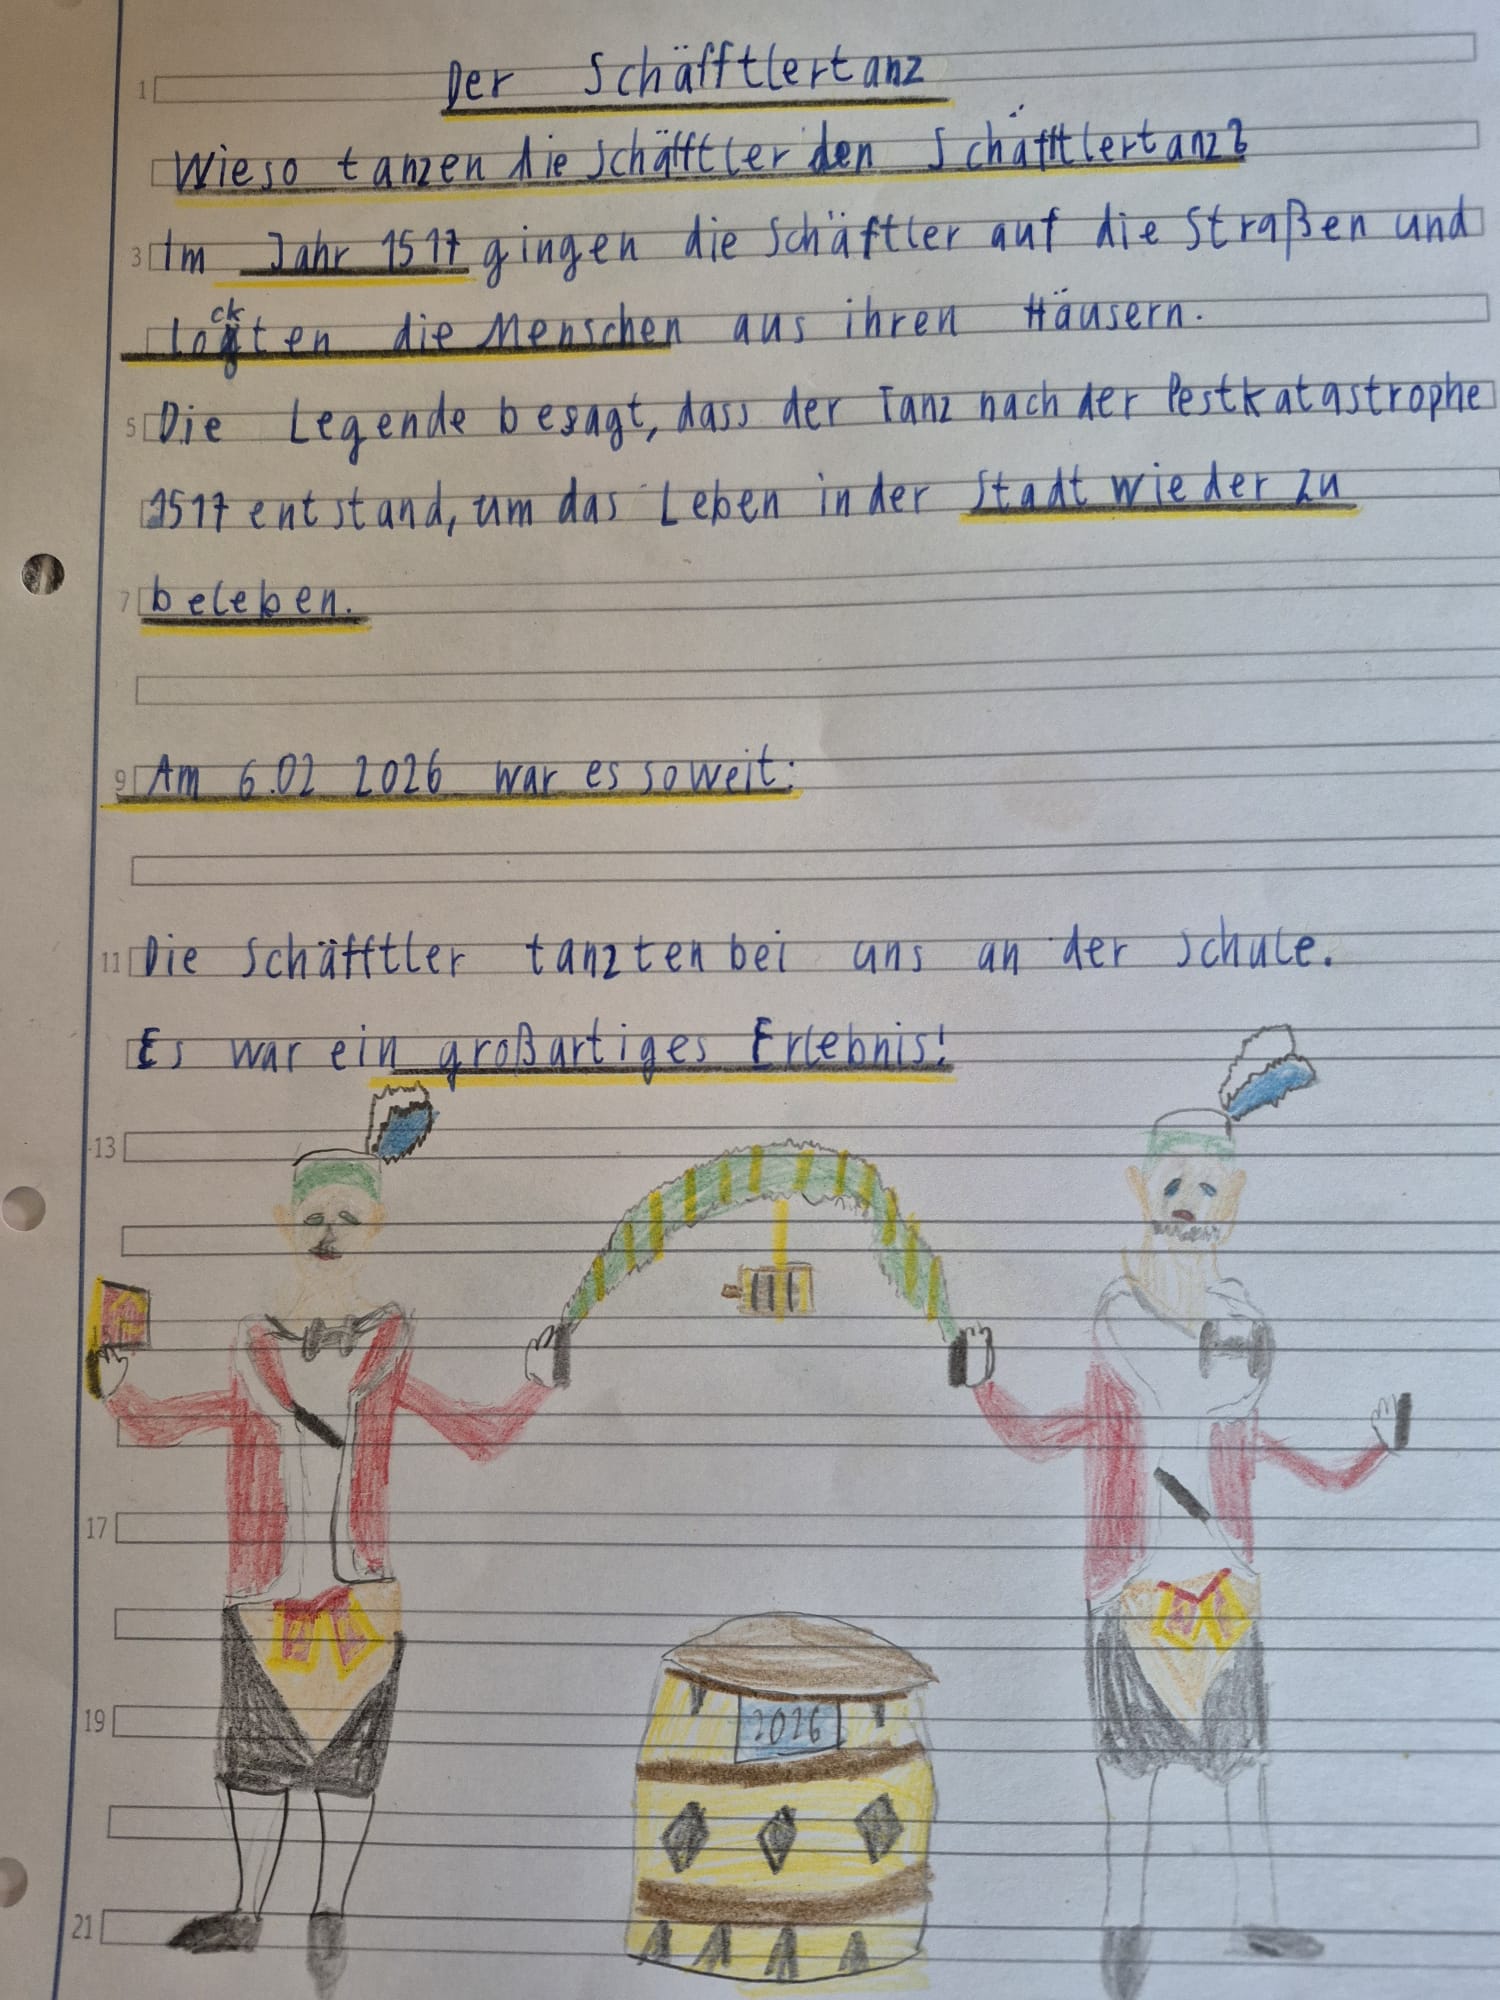 1
Der Schäfftlertanz
Wieso tanzen die Schäfftler den Schäfftlertanz?
3
Im Jahr 1517 gingen die Schäftler auf die Straßen und
lockten die Menschen aus ihren Häusern.
5
Die Legende besagt, dass der Tanz nach der Pestkatastrophe
1517 entstand, um das Leben in der Stadt wieder zu
7
beleben.
9
Am 6.02 2026 war es soweit:
11
Die Schäfftler tanzten bei uns an der Schule.
Es war ein großartiges Erlebnis!
13
17
19
2026
21